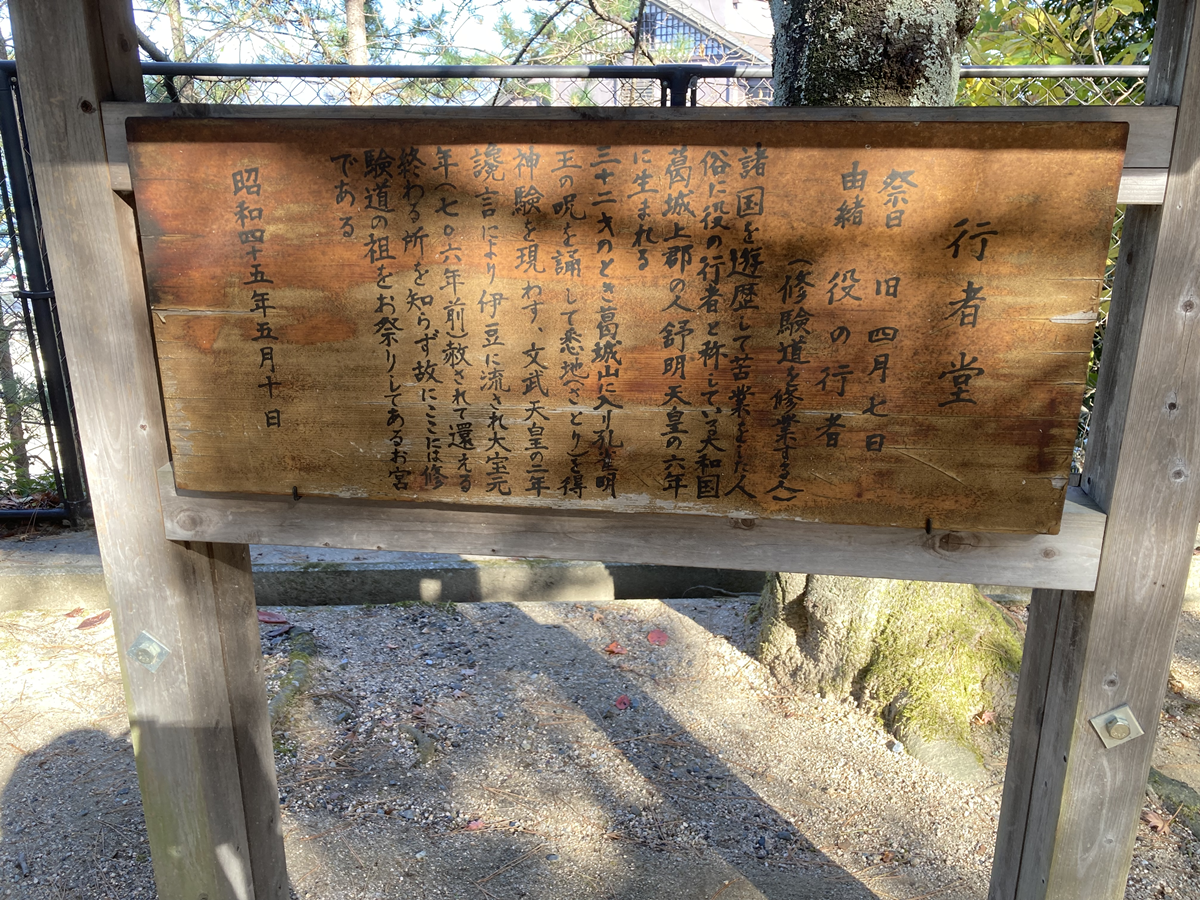 行者堂
祭日 旧 四月七日
由緒 役の行者
(修験道を修業する人)
諸国を遊歴して苦業をした人
俗に役の行者と称している大和国
葛城上郡の人舒明天皇の六年
に生まれる
三十二才のとき葛城山に入り孔雀明
王の呪を誦して悉地(さとり)を得
神験を現わす、文武天皇の二年
讒言により伊豆に流され大宝元
年(七〇六年前)赦されて還える
終わる所を知らず故にここには修
験道の祖をお祭りしてあるお宮
である
昭和四十五年五月十日